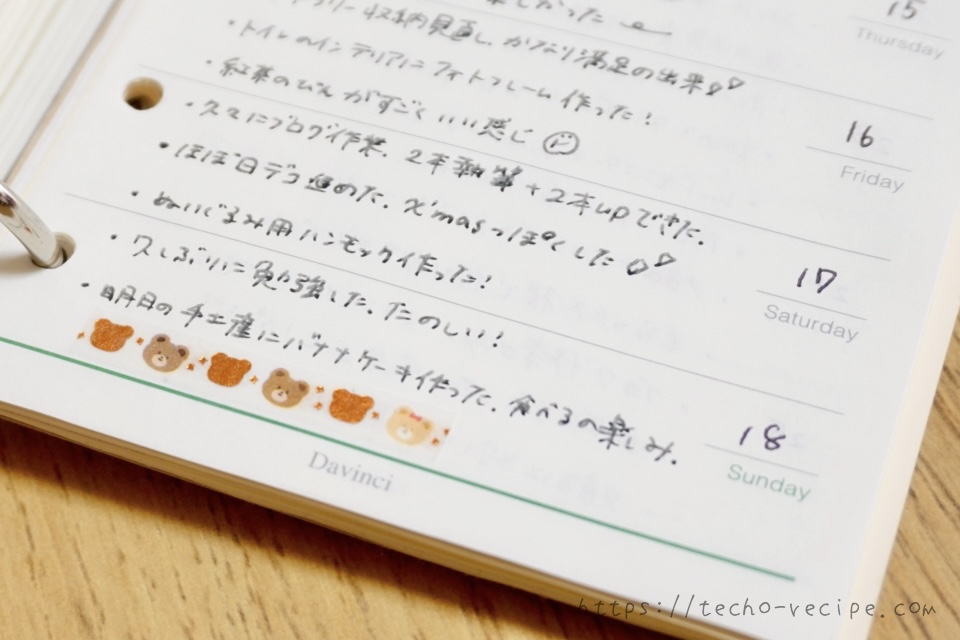 楽しかった
15
Thursday
収納見直し. かなり満足の出来
・トイレのインテリアにフォトフレーム作った!
・紅茶のびんがすごくいい感じ
16
Friday
・久々にブログ作業. 2本執筆+2本upできた.
・ほぼ日デコ進めた. X'masっぽくした
17
Saturday
・ぬいぐるみ用ハンモック作った!
・久しぶりに勉強した. たのしい!
・明日の手土産にバナナケーキ作った. 食べるの楽しみ.
18
Sunday
Davinci
https://techo-recipe.com